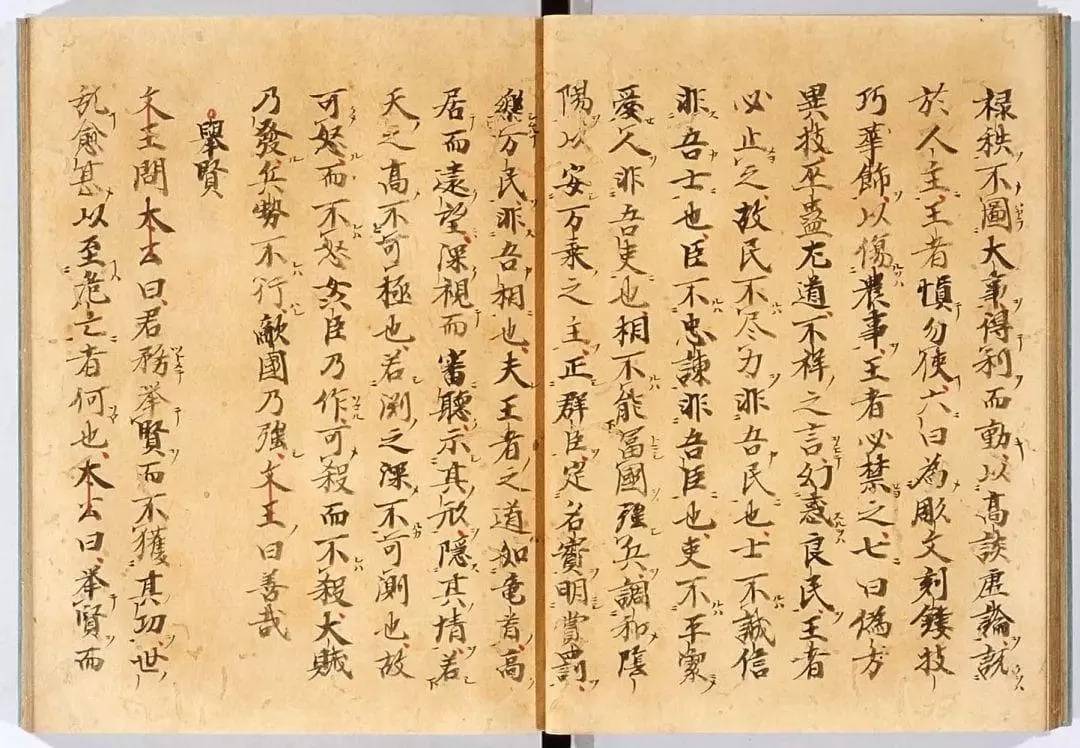 禄秩不圖大事得利而動以高談虚論説
於人主王者慎勿使六曰為彫文刻鏤技
巧華飾以傷農事王者必禁之七曰偽方
異技巫蠱左道不祥之言幻惑良民王者
必止之故民不尽力非吾民也士不誠信
非吾士也臣不忠諫非吾臣也吏不平潔
愛人非吾吏也相不能冨國強兵調和陰
陽以安万乗之主正群臣定名實明賞罰
樂万民非吾相也夫王者之道如竜首高
居而遠望深視而審聽示其形隠其情若
天之高不可極也若渕之深不可測也故
可怒而不怒姦臣乃作可殺而不殺大賊
乃發兵勢不行敵國乃強文王曰善哉
舉賢
文王問太公曰君務举賢而不獲其功世
乱愈甚以至危亡者何也太公曰举賢而